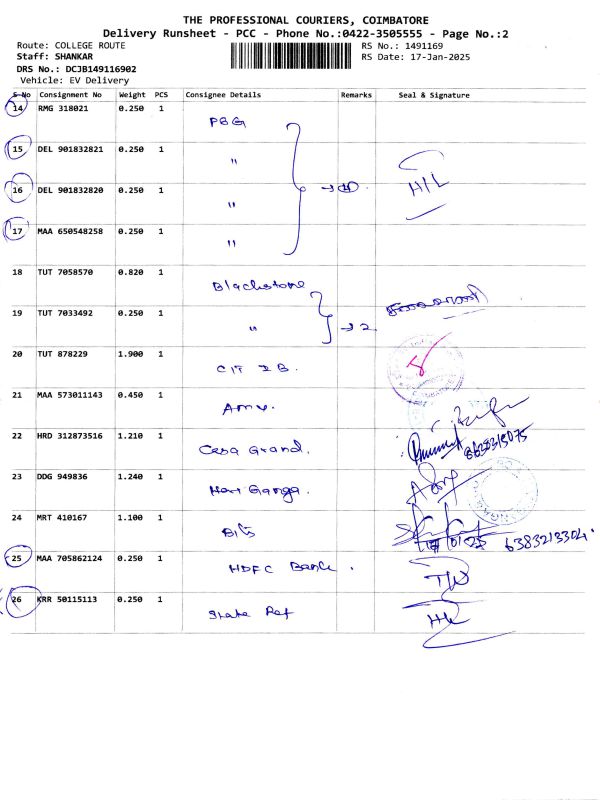 THE PROFESSIONAL COURIERS, COIMBATORE
Delivery Runsheet - PCC - Phone No.:0422-3505555 - Page No.:2
Route: COLLEGE ROUTE RS No.: 1491169
Staff: SHANKAR RS Date: 17-Jan-2025
DRS No.: DCJB149116902
Vehicle: EV Delivery
S No Consignment No Weight PCS Consignee Details Remarks Seal & Signature
14 RMG 318021 0.250 1
PBG
15 DEL 901832821 0.250 1
"
16 DEL 901832820 0.250 1
H/L
"
17 MAA 650548258 0.250 1
"
18 TUT 7058570 0.820 1
Blackstone
19 TUT 7033492 0.250 1
" → 2
20 TUT 878229 1.900 1
CIT IB.
21 MAA 573011143 0.450 1
22 HRD 312873516 1.210 1
Casa Grand.
23 DDG 949836 1.240 1
Hari Ganga.
24 MRT 410167 1.100 1
6383213304
25 MAA 705862124 0.250 1
HDFC Bank.
26 KRR 50115113 0.250 1
State Ref